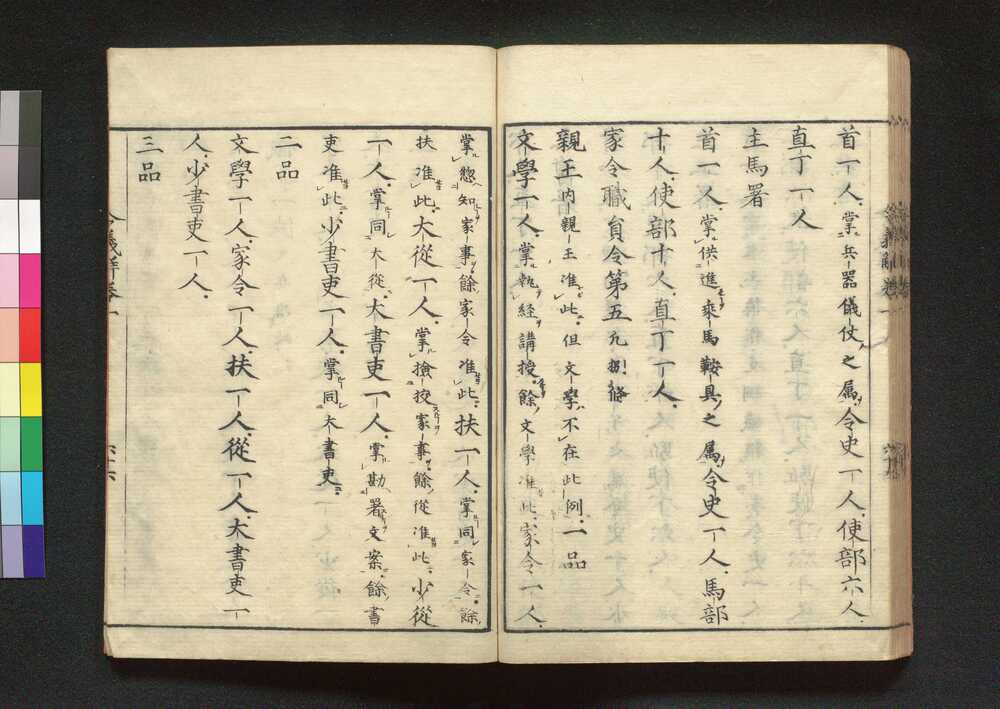 首一人掌兵器儀仗之属令史一人使部六人
直丁一人
主馬署
首一人掌供進乗馬鞍具之属令史一人馬部
十人使部十人直丁一人
家令職員令第五凡捌條
親王内親王准此但文學不在此例一品
文學一人掌執経講授餘文學准此家令一人
掌惣知家事餘家令准此扶一人掌同家令餘
扶准此大從一人掌撿挍家事餘從准此少從
一人掌同大從大書吏一人掌勘署文案餘書
吏准此少書吏一人掌同大書吏
二品
文學一人家令一人扶一人從一人大書吏一
人少書吏一人
三品